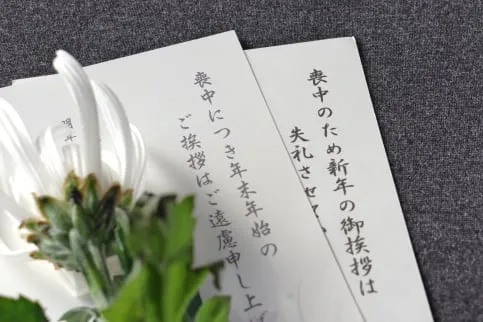 喪中のため新年の御挨拶は
失礼させて
喪中につき年末年始の
ご挨拶はご遠慮申し上げ